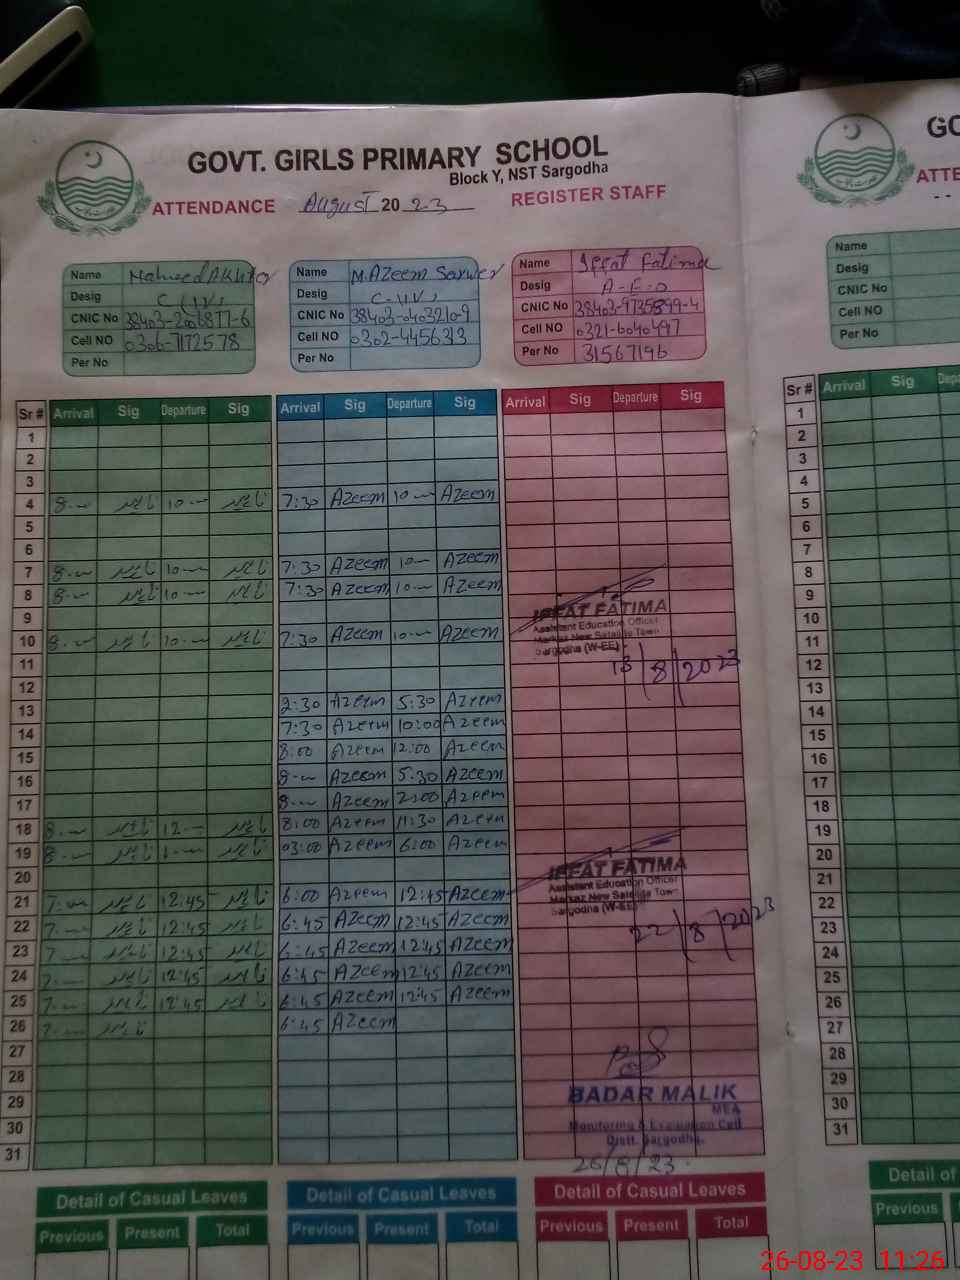 GOVT. GIRLS PRIMARY SCHOOL
Block Y, NST Sargodha
ATTENDANCE August 2023 REGISTER STAFF
Name
Desig
CNIC No
Cell NO 0306-7172578
Per No
Name M. Azeem Sarwer
Desig
CNIC No 38403-0403210-9
Cell NO
Per No
Name Iffat Fatima
Desig A-E-O
CNIC No
Cell NO 0321-6040497
Per No 31567196
Sr # Arrival Sig Departure Sig Arrival Sig Departure Sig Arrival Sig Departure Sig
1
2
3
4 7:30 Azeem Azeem
5
6
7 7:30 Azeem Azeem
8 7:30 Azeem Azeem
9
10 7:30 Azeem Azeem
11
12
13 2:30 Azeem 5:30 Azeem
14 7:30 Azeem 10:00 Azeem
15 8:00 Azeem 12:00 Azeem
16 Azeem 5:30 Azeem
17 Azeem 2:00 Azeem
18 8:00 Azeem 11:30 Azeem
19 03:00 Azeem 6:00 Azeem
20
21 12:45 6:00 Azeem 12:45 Azeem
22 12:45 6:45 Azeem 12:45 Azeem
23 12:45 6:45 Azeem 12:45 Azeem
24 12:45 6:45 Azeem 12:45 Azeem
25 12:45 6:45 Azeem 12:45 Azeem
26 6:45 Azeem
27
28
29
30
31
IFFAT FATIMA
Assistant Education Officer
Markaz New Satelite Town
Sargodha (W-EE)
18/8/2023
IFFAT FATIMA
Assistant Education Officer
Markaz New Satelite Town
Sargodha (W-EE)
22/8/2023
BADAR MALIK
MEA
Monitoring & Evaluation Cell
Distt. Sargodha.
26/8/23
Detail of Casual Leaves
Previous Present Total
Detail of Casual Leaves
Previous Present Total
Detail of Casual Leaves
Previous Present Total
GO
ATTE
Name
Desig
CNIC No
Cell NO
Per No
Sr # Arrival Sig Depa
1
2
3
4
5
6
7
8
9
10
11
12
13
14
15
16
17
18
19
20
21
22
23
24
25
26
27
28
29
30
31
Detail of
Previous
26-08-23 11:26